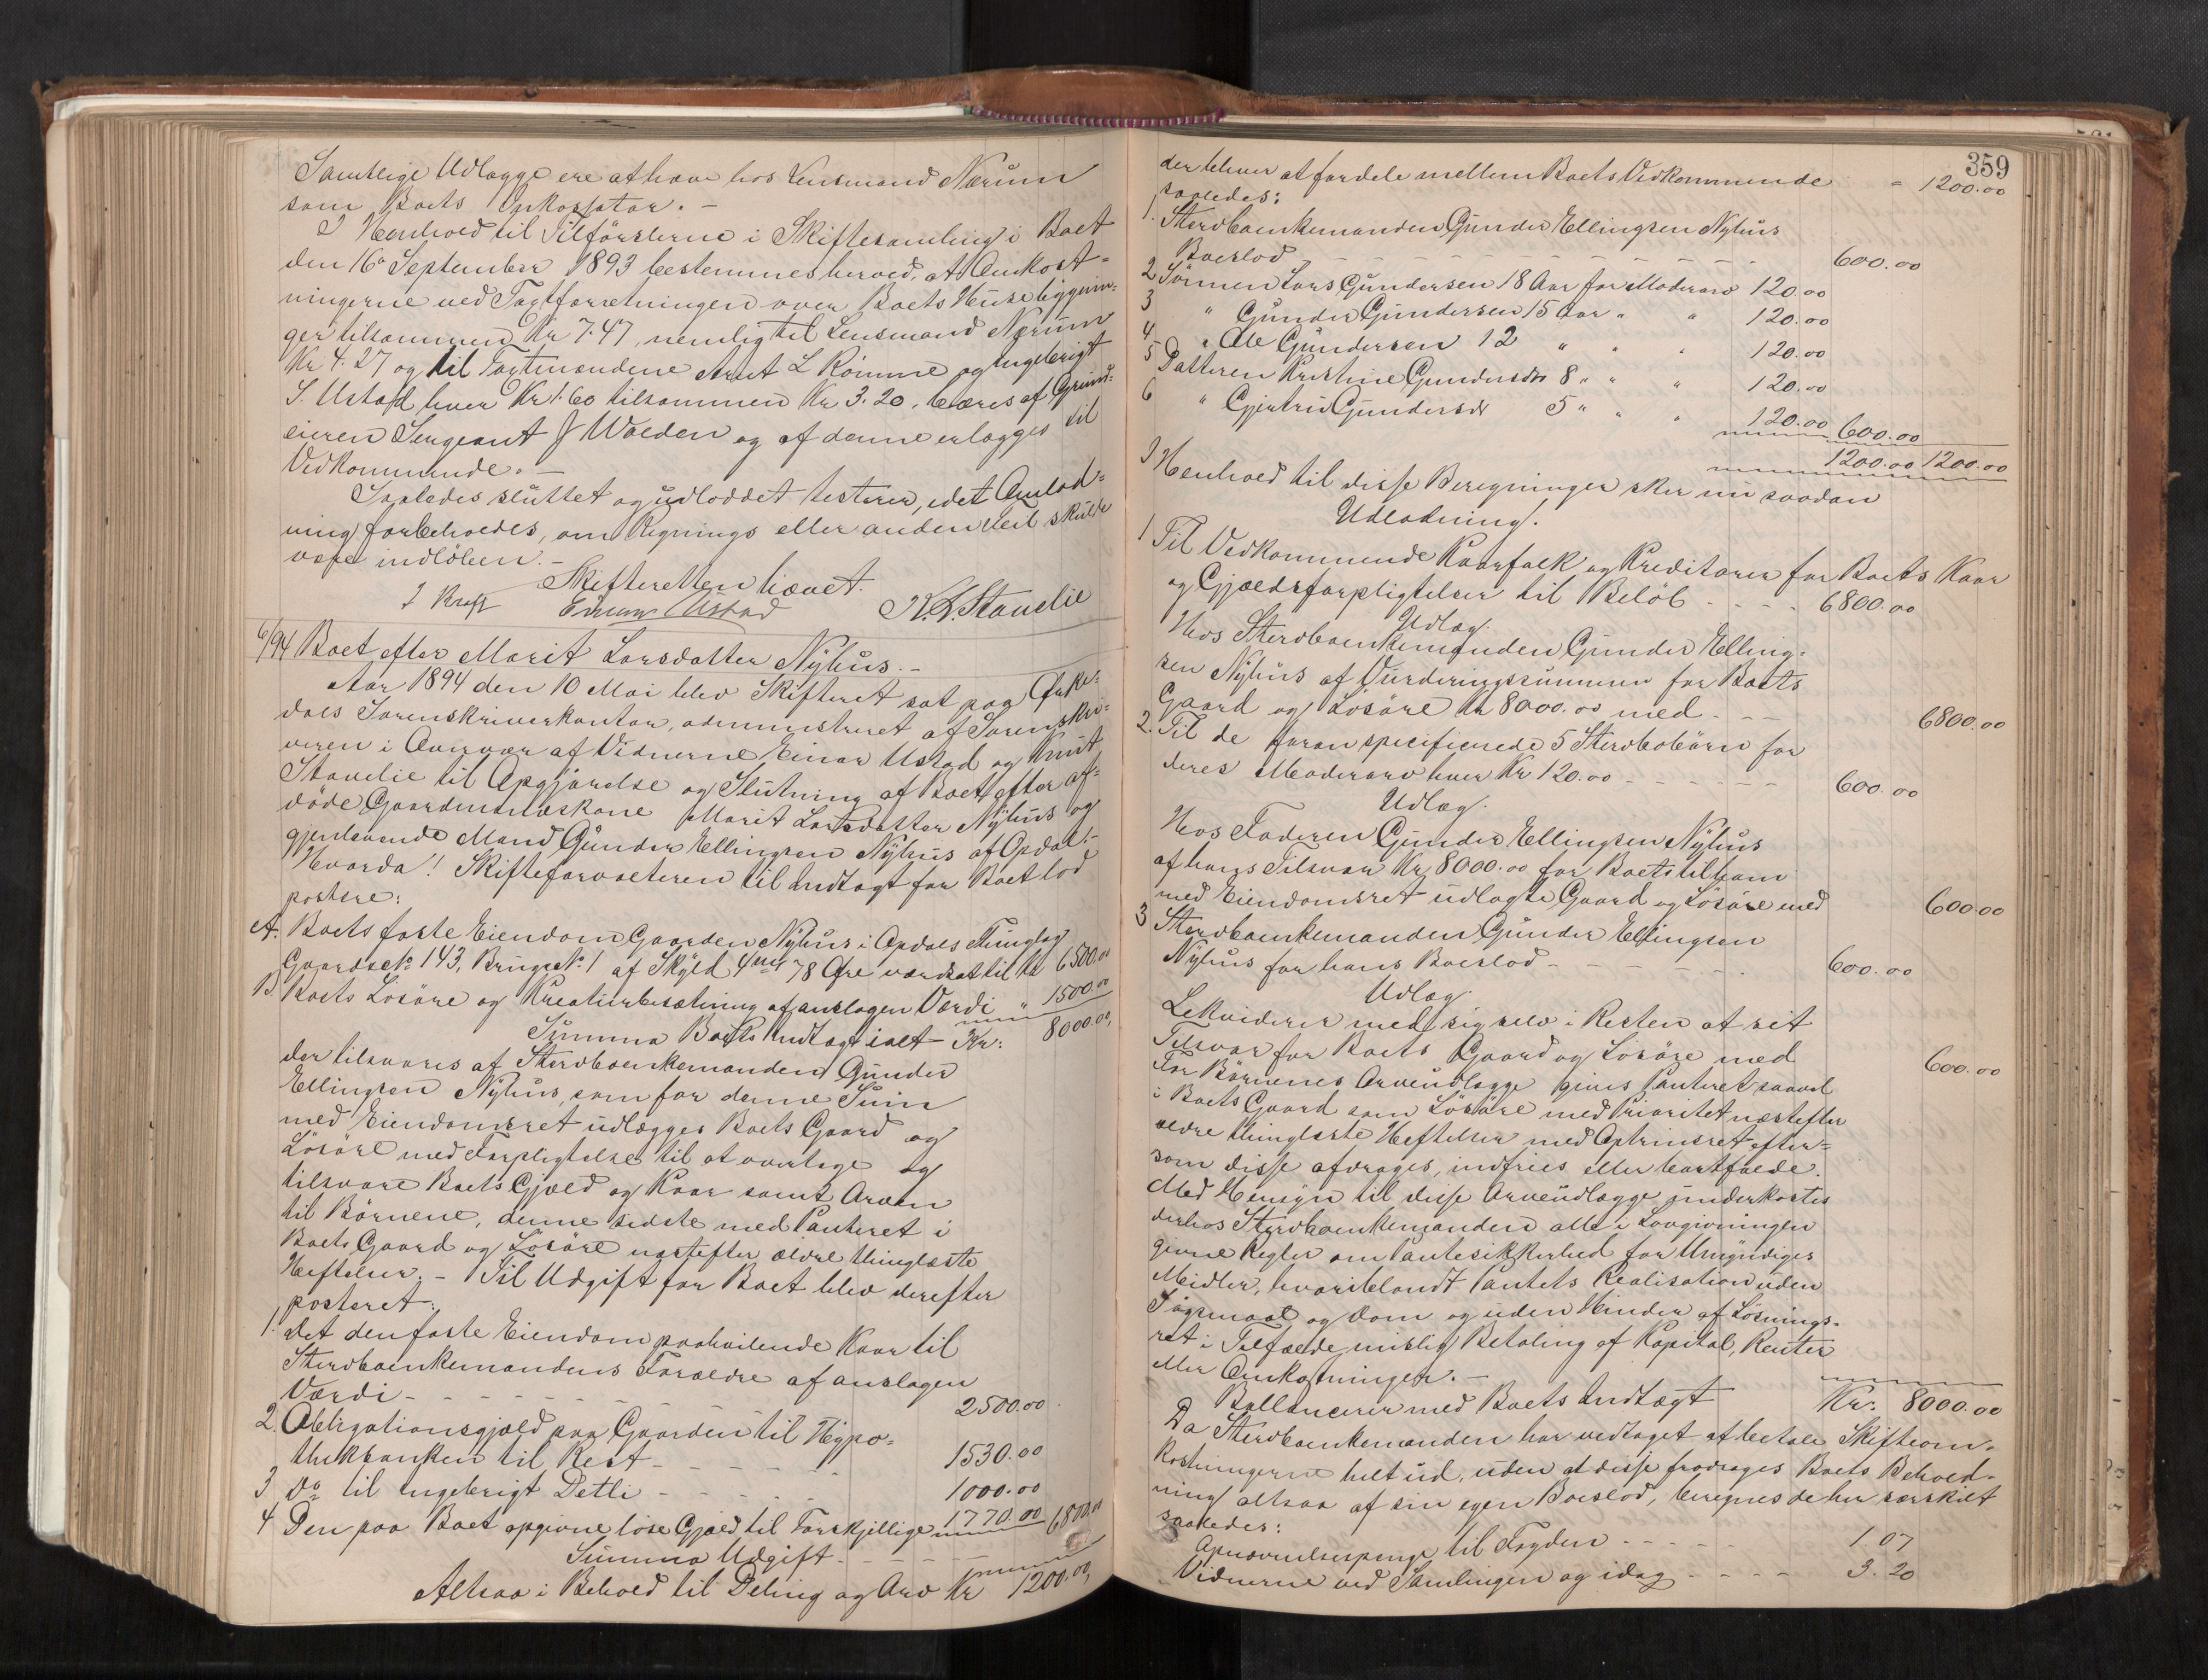 Samtlige Udlægge ere at hæve hos Lensmand Nærum
som Boets Inkassator. -
I Henhold til Tilførslerne i Skiftesamling i Boet
den 16de September 1893 bestemmes herved, at Omkost-
ningerne ved Taxtforretningen over Boets Huse bygnin-
ger tilsammen Kr 7.47, nemlig til Lensmand Nærum
Kr 4.27 og til Taxtmændene Arnt L Rømme og Ingebrigt
S. Ustad hver Kr 1.60 tilsammen Kr 3.20, bæres af Grund-
eieren Sergeant J Wolden og af denne erlægges til
Vedkommende. -
Saaledes sluttet og udloddet testerer, idet Omlod-
ning forbeholdes, om Regnings eller anden Feil skulde
være indløben. -
Skifteretten hævet.
I Kraft Einar Ustad K. L. Stavelie
6/94 Boet efter Marit Larsdatter Nyhus. -
Aar 1894 den 10 Mai blev Skifteret sat paa Orke-
dals Sorenskriverkontor, administreret af Sorenskri-
veren i Overvær af Vidnerne Einar Ustad og Knut
Stavelie til Opgjørelse og Slutning af Boet efter af-
døde Gaardmandskone Marit Larsdatter Nyhus og
gjenlevende Mand Gunder Ellingsen Nyhus af Opdal. -
Hvorda! Skifteforvalteren til Indtægt for Boet lod
postere:
A. Boets faste Eiendom Gaarden Nyhus i Opdals Thinglag
Gaards No 143, Brugs No 1 af Skyld 4 mrk 78 Øre værdsat til Kr 6500.00
B. Boets Løsøre og Kreaturbesætning af anslagen Værdi " 1500.00
Summa Boets Indtægt ialt Kr: 8000.00,
der tilsvares af Stervboenkemanden Gunder
Ellingsen Nyhus, som for denne Sum
med Eiendomsret udlægges Boets Gaard og
Løsøre med Forpligtelse til at overtage og
tilsvare Boets Gjæld og Kaar samt Arven
til Børnene, denne sidste med Panteret i
Boets Gaard og Løsøre næstefter ældre thinglæste
Heftelser. - Til Udgift for Boet blev derefter
posteret:
1. Det den faste Eiendom paahvilende Kaar til
Stervboenkemandens Forældre af anslagen
Værdi - - - - - - 2500.00
2. Obligationsgjæld paa Gaarden til Hypo-
thekbanken til Rest - - - - - 1530.00
3 Do til Ingebrigt Detli - - - - 1000.00
4 Den paa Boet opgivne løse Gjæld til Forskjellige 1770.00 6800.00
Summa Udgift - - - -
Altsaa i Behold til Deling og Arv Kr 1200.00,
359
der bliver at fordele mellem Boets Vedkommende - 1200.00
saaledes:
1. Stervboenkemanden Gunder Ellingsen Nyhus
Boeslod - - - - - - - 600.00
2 Sønnen Lars Gundersen 18 Aar for Moderarv 120.00
3 " Gunder Gundersen 15 Aar " " 120.00
4 " Ole Gundersen 12 " " " 120.00
5 Datteren Kristine Gundersdtr 8 " " " 120.00
6 " Gjertrud Gundersdr 5 " " " 120.00 600.00
1200.00 1200.00
I Henhold til disse Beregninger sker nu saadan
Udlodning.
1 Til Vedkommende Kaarfolk og Kreditorer for Boets Kaar
og Gjældsforpligtelser til Beløb - - - - 6800.00
Udlæg.
Hos Stervboenkemanden Gunder Elling-
sen Nyhus af Vurderingssummen for Boets
Gaard og Løsøre Kr 8000.00 med - - - 6800.00
2. Til de foran specificerede 5 Stervbobørn for
deres Moderarv hver Kr 120.00 - - - - - - 600.00
Udlæg.
Hos Faderen Gunder Ellingsen Nyhus
af hans Tilsvar Kr 8000.00 for Boets til ham
med Eiendomsret udlagte Gaard og Løsøre med 600.00
3 Stervboenkemanden Gunder Ellingsen
Nyhus for hans Boeslod - - - - - - 600.00
Udlæg.
Lekviderer med sig selv i Resten af sit
Tilsvar for Boets Gaard og Løsøre med 600.00
For Børnenes Arveudlægge gives Panteret saavel
i Boets Gaard som Løsøre med Prioritet næstefter
ældre thinglæste Heftelser med Optrinsret efter-
som disse afdrages, indfries eller bortfalde.
Med Hensyn til disse Arveudlægge underkastes
derhos Stervboenkemanden alle i Lovgivningen
givne Regler om Pantesikkerhed for Umyndiges
Midler, hvoriblandt Pantets Realisation uden
Søgsmaal og Dom og uden Hinder af Løsnings-
ret i Tilfælde mislig Betaling af Kapital, Renter
eller Omkostninger. -
Ballancerer med Boets Indtægt Kr: 8000.00
Da Stervboenkemanden har vedtaget at betale Skifteom-
kostningerne helt ud, uden at disse fradrages Boets Behold-
ning altsaa af sin egen Boeslod, beregnes de her særskilt
saaledes:
Opnævnelsespenge til Fogden - - - - - 1 07
Vidnerne ved Samlingen og idag - - - - 3.20